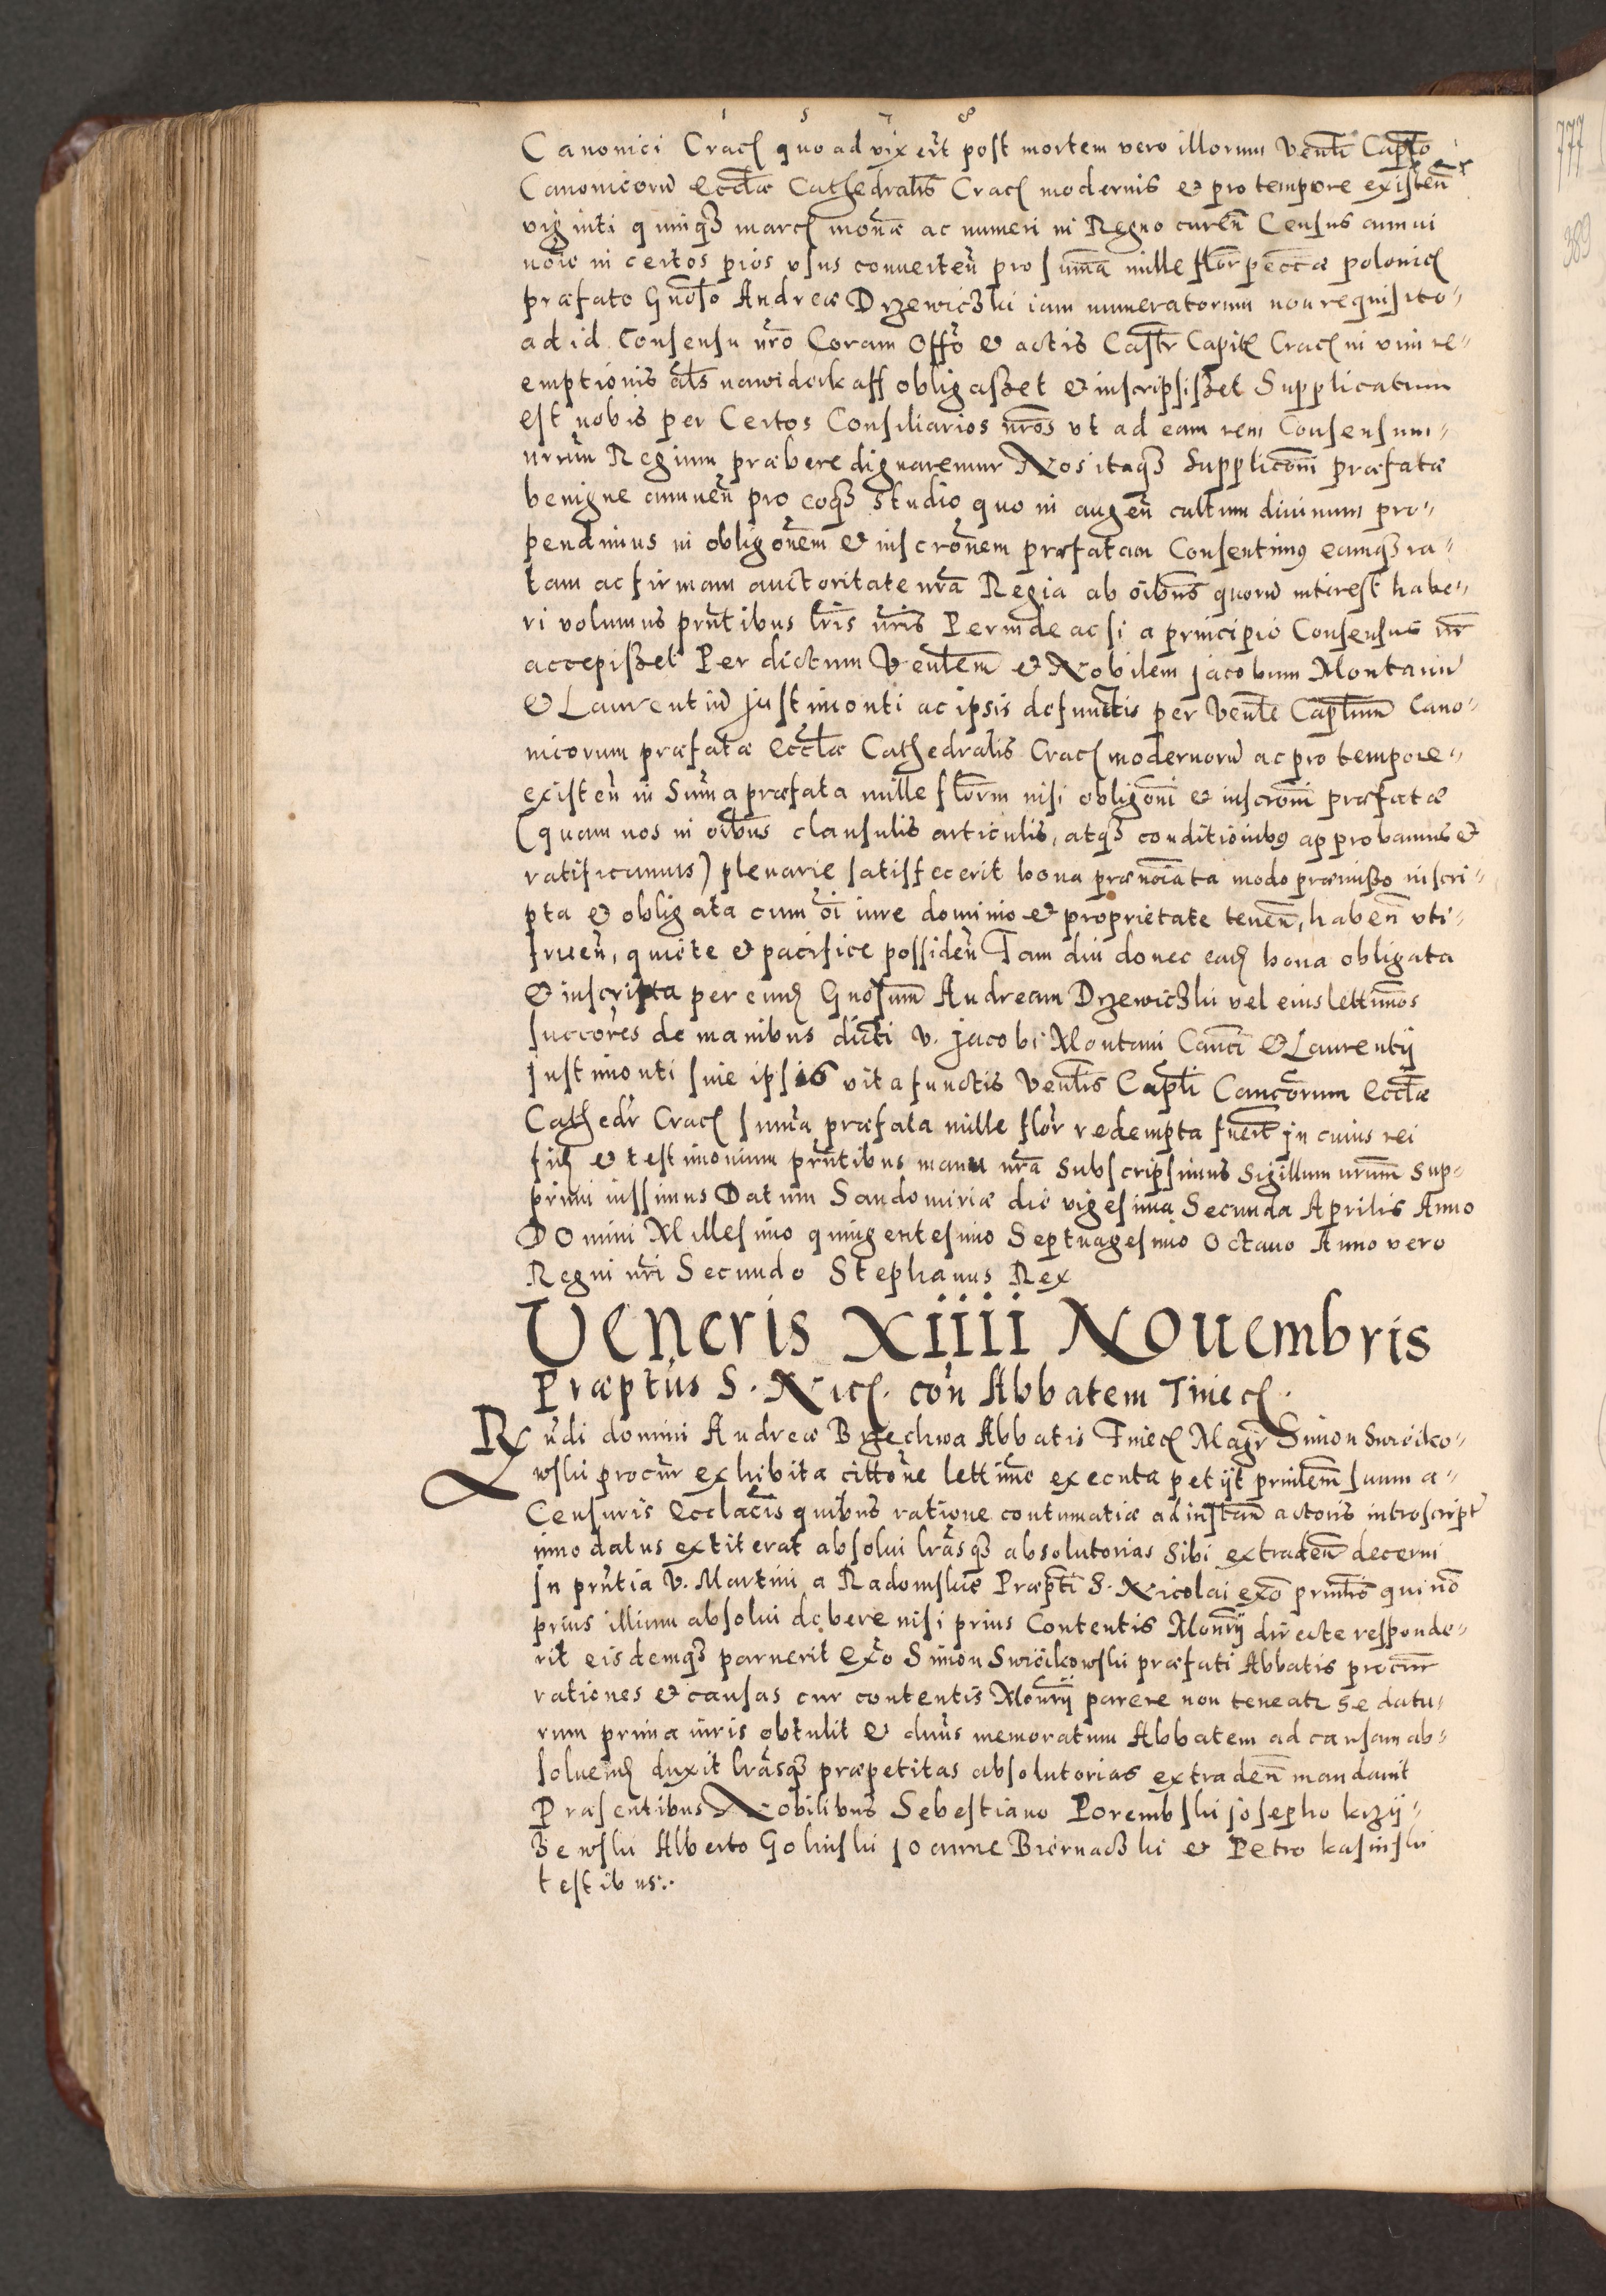 1 5 7 8
Canonici Crac quo ad vixerīt post mortem vero illorum Venlī Caplo
Canonicorū Ecclæ Cathedralis Crac modernis & pro tempore existen
viginti quinqȝ marc monæ ac numeri in Regno curen Census annui
in certos pios vsus conuerten pro summa mille flor peccæ polonic
præfato Gnoso Andreæ Drzewiczki iam numeratorum non requisito
ad id Consensu nro Coram Offo & actis Castr Capit Crac in vim re-
emptionis als nawiderkaff obligasset & inscripsisset Supplicatum
est nobis per Certos Consiliarios nros vt ad eam rem Consensum
nrum Regium præbere dignaremur Nos itaqȝ Supplicom præfatæ
benigne annuen pro eoqȝ studio quo in augen cultum diuinum pro-
pendimus in obligonem & inscronem præfatam Consentimus eamqȝ ra-
tam ac firmam auctoritate nra Regia ab oibus quorū interest habe-
ri volumus prntibus lris nris Perinde ac si a principio Consensus nr
accepisset Per dictum Venlem & Nobilem Jacobum Montanū
& Laurentiū Justimonti ac ipsis defunctis per Venle Caplum Cano-
nicorum præfatæ Ecclæ Cathedralis Crac modernorū ac pro tempore
existen in Summa præfata mille florm nisi obligoni & inscroni præfatæ
(quam nos in oibus clausulis articulis, atqȝ conditionibus approbamus &
ratificamus) plenarie satisfecerit bona prænoiata modo præmisso inscri-
pta & obligata cum oi iure dominio & proprietate tenen, haben vti-
fruen, quiete & pacifice possiden Tam diu donec ead bona obligata
& inscripta per eund Gnosum Andream Drzewiczki vel eius lettimos
succores de manibus dicti V. Jacobi Montani Canci & Laurentij
Justimonti siue ipsis vita functis Venlis Capli Cancorum Ecclæ
Cathedr Crac summa præfata mille flor redempta fuerit Jn cuius rei
fid & testimonium prntibus manu nra Subscripsimus Sigillum nrum Sup-
primi iussimus Datum Sandomiriæ die vigesima Secunda Aprilis Anno
Domini Millesimo quingentesimo Septuagesimo Octauo Anno vero
Regni nri Secundo Stephanus Rex
Veneris Xiiii Nouembris
Præptus S. Nic. con Abbatem Tinec.
Rndi domini Andreæ Brzechwa Abbatis Tinec Magr Simon Swiciko-
wski procur exhibita cittone lettime executa petijt prinlem suum a
Censuris Ecclacis quibus ratione contumatiæ ad instan actoris introscript
innodatus extiterat absolui lrasqȝ absolutorias sibi extraden decerni
Jn prntia V. Martini a Radomsko Præpti S. Nicolai exo prinlis qui nō
prius illum absolui debere nisi prius Contentis Monrij directe responde-
rit eisdemqȝ paruerit Exo Simon Swicikowski præfati Abbatis procur
rationes & causas cur contentis Monrij parere non teneatr se datu-
rum prima iuris obtulit & dnus memoratum Abbatem ad causam ab-
soluend duxit lrasqȝ præpetitas absolutorias extraden mandauit
Præsentibus Nobilibus Sebestiano Porembski Josepho krzy-
zewski Alberto Golinski Joanne Biernaczki & Petro kasinski
testibus:.
777
389